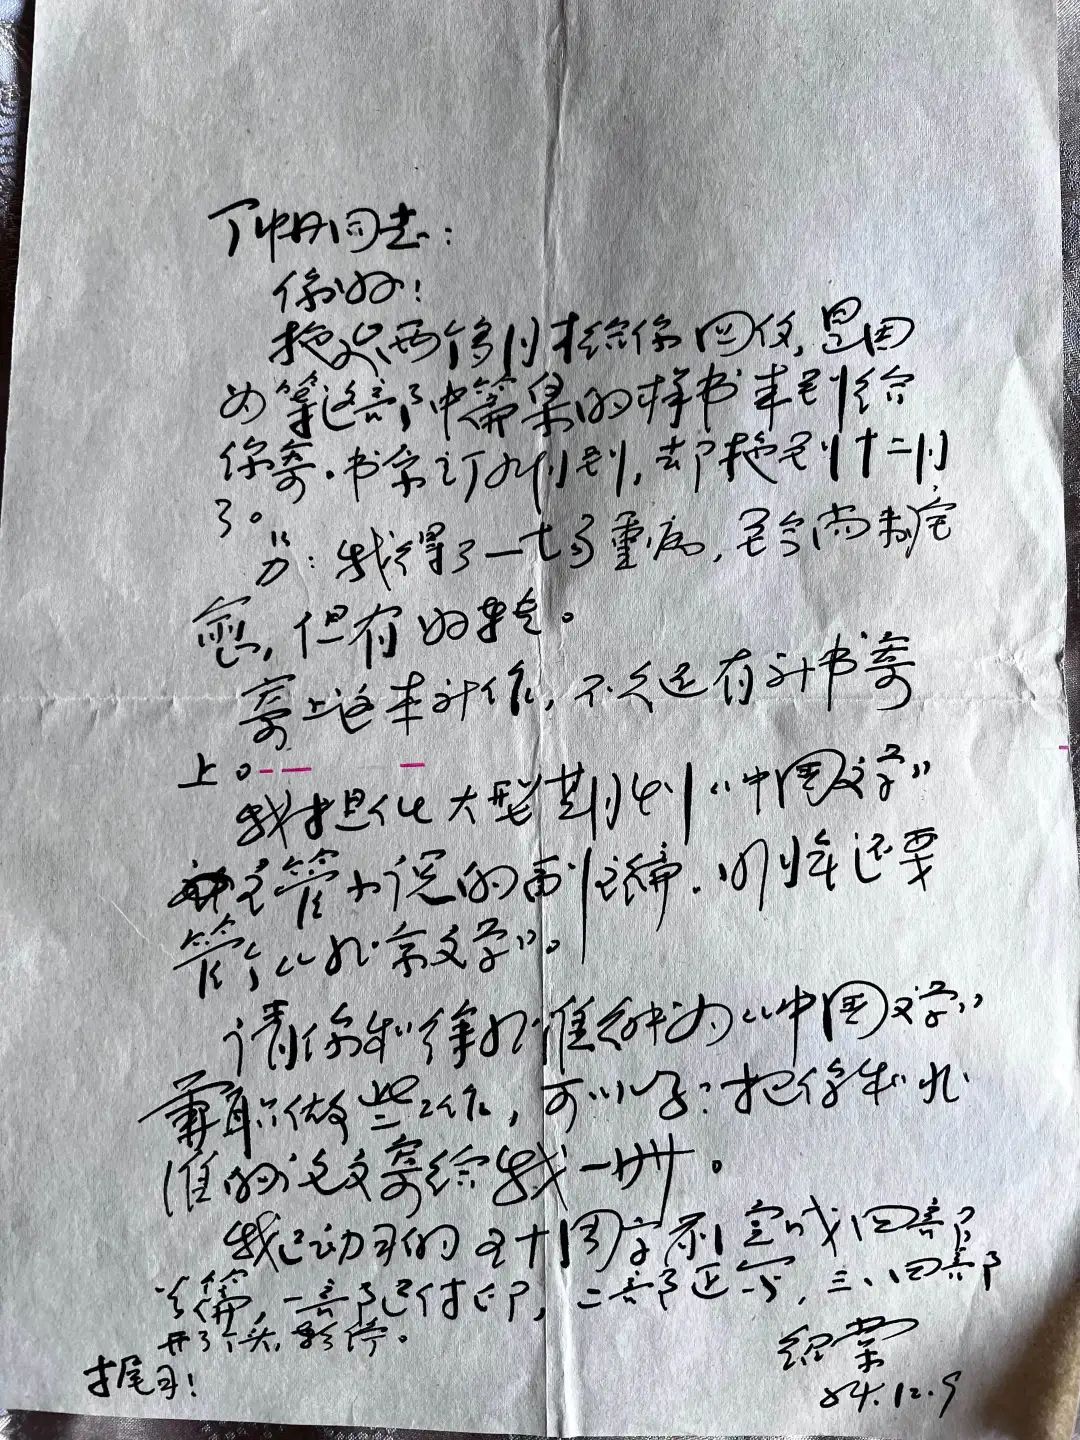 丁帆同志：
你好！
拖欠两个多月才给你回信，是因
为等这部中篇集的样书来到给
你寄。书原订九月到，却拖到十二月
了。
另：我得了一七多重病，至今尚未痊
愈，但有好转。
寄上这本小作，不久还有新书寄
上。
我担任大型期刊《中国文学》
主管小说的副主编，明年还要
管《北京文学》。
请你和徐兆淮多为《中国文学》
兼职做些工作，可以么？把你和兆
淮的论文寄给我一册。
我已动手的五十周岁前完成四部
长篇，一部已付印，二部正写，三、四部
开了个头，暂停。
绍棠
84.12.9
才尾月！